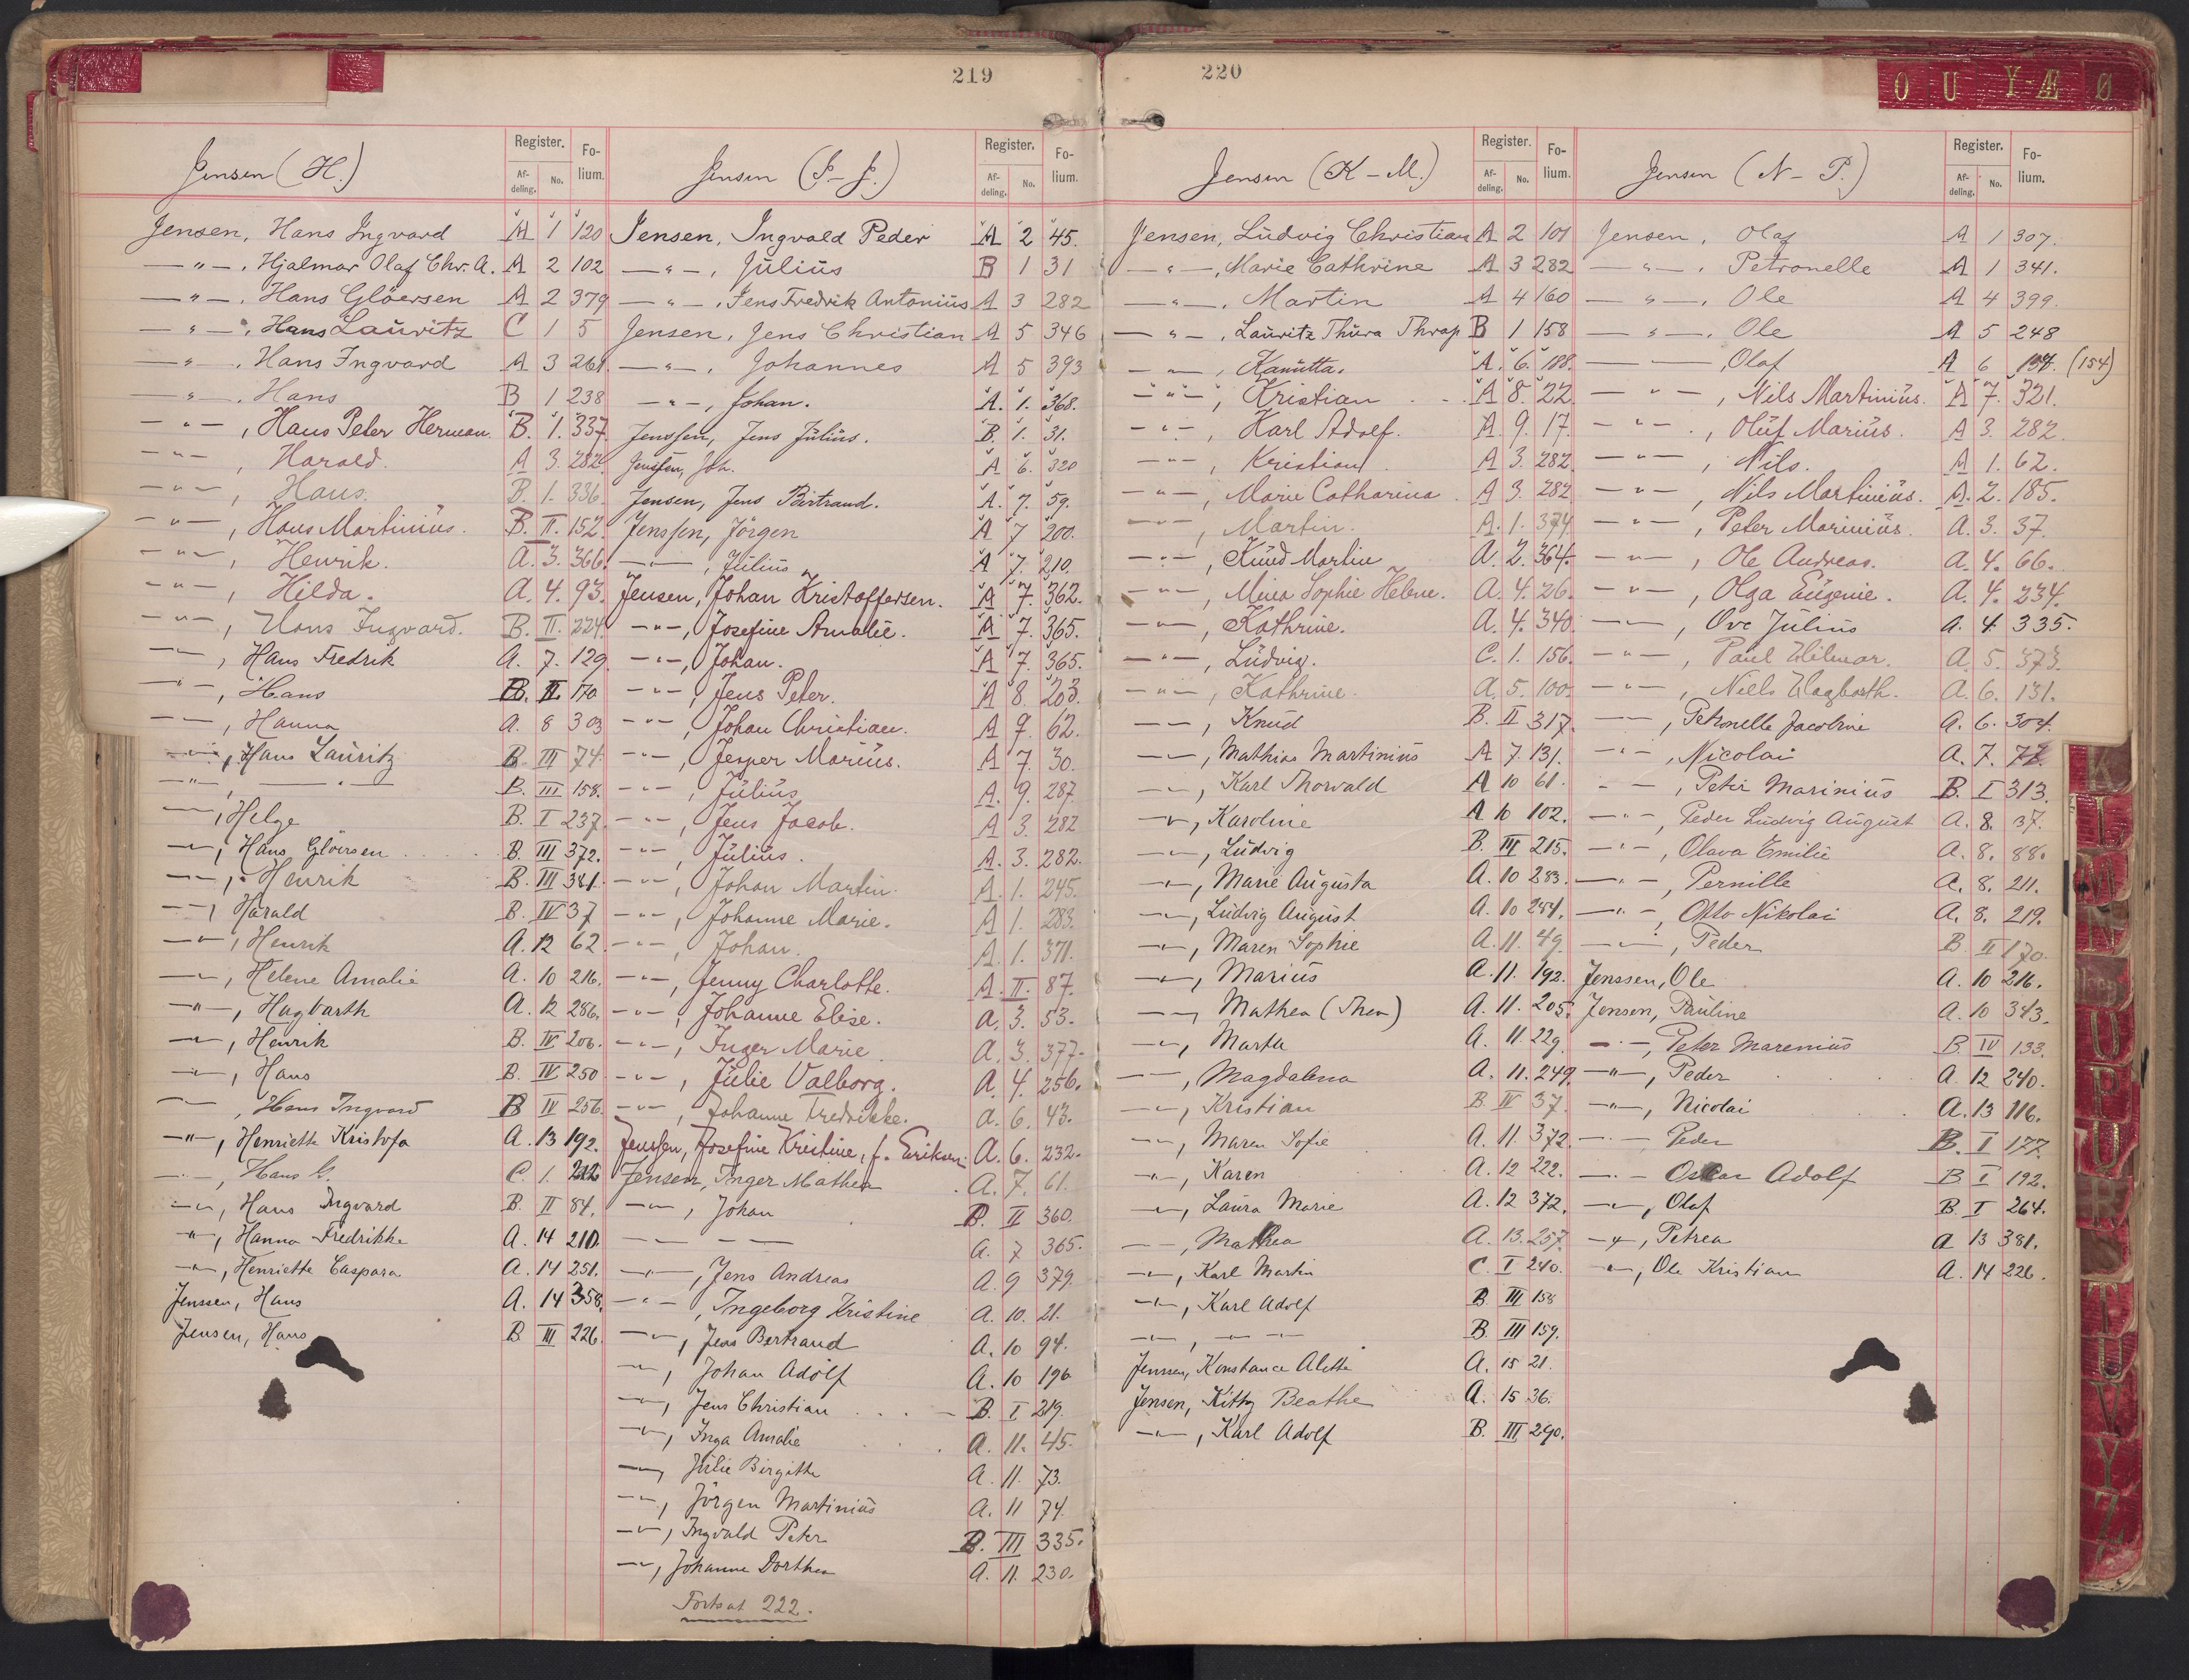 219
Jensen (H.) Register. Af-deling. No. Fo-lium.
Jensen, Hans Ingvard A 1 120
—"—, Hjalmar Olaf Chr. A. A 2 102
—"—, Hans Gløersen A 2 379
—"—, Hans Lauritz C 1 5
—"—, Hans Ingvard A 3 261
—"—, Hans B 1 238
—"—, Hans Peter Herman B. 1. 337
—"—, Harald. A 3. 282
—"—, Hans. B. 1. 336
—"—, Hans Martinius. B. II. 152
—"—, Henrik. A. 3. 366
—"—, Hilda. A. 4. 93.
—"—, Hans Ingvard. B. II. 224
—"—, Hans Fredrik A. 7. 129
—"—, Hans B. II 170
—"—, Hanna A. 8 303
—"—, Hans Lauritz B. III 74
—"—, —"— B. III 158.
—"—, Helge B. I 237.
—"—, Hans Gløersen B. III 372.
—"—, Henrik B. III 381.
—"—, Harald B. IV 37
—"—, Henrik A. 12 62.
—"—, Helene Amalie A. 10 216.
—"—, Hagbarth A. 12 286.
—"—, Henrik B. IV 206.
—"—, Hans B. IV 250
—"—, Hans Ingvard B IV 256.
—"—, Henriette Kristofa A. 13 192.
—"—, Hans G. C. 1. 212
—"—, Hans Ingvard B. II 84.
—"—, Hanna Fredrikke A. 14 210.
—"—, Henriette Caspara A. 14 251.
Jenssen, Hans A. 14 358.
Jensen, Hans B. III 226.
Jensen (I-J.) Register. Af-deling. No. Fo-lium.
Jensen, Ingvald Peder A 2 45.
—"—, Julius B 1 31
—"—, Jens Fredrik Antonius A 3 282
Jensen, Jens Christian A 5 346
—"—, Johannes A 5 393
—"—, Johan. A. 1. 368.
Jenssen, Jens Julius. B. 1. 31.
Jenssen, Joh. A 6. 320
Jensen, Jens Birtrand. A. 7. 59.
Jenssen, Jörgen A 7 200.
—"—, Julius A 7. 210.
Jensen, Johan Kristoffersen. A 7. 362.
—"—, Josefine Amalie. A 7. 365.
—"—, Johan. A 7. 365.
—"—, Jens Peter. A 8. 203
—"—, Johan Christian. A 9. 62.
—"—, Jesper Marius. A 7. 30.
—"—, Julius A. 9. 287
—"—, Jens Jacob. A 3. 282
—"—, Julius. A. 3. 282.
—"—, Johan Martin. A. 1. 245.
—"—, Johanne Marie. A 1. 283.
—"—, Johan. A. 1. 371.
—"—, Jenny Charlotte. A. II. 87.
—"—, Johanne Elise. A. 3. 53.
—"—, Inger Marie. A. 3. 377.
—"—, Julie Valborg. A. 4. 256.
—"—, Johanne Fredrikke. A. 6. 43.
Jenssen, Josefine Kristine, f. Eriksen. A. 6. 232.
Jensen, Inger Mathea A. 7. 61.
—"—, Johan B. II 360.
— — — — A. 7 365.
—"—, Jens Andreas A. 9 379
—"—, Ingeborg Kristine A. 10. 21.
—"—, Jens Bertrand A. 10 94.
—"—, Johan Adolf A. 10 196
—"—, Jens Christian B. I 219.
—"—, Inga Amalie A. 11. 45.
—"—, Julie Birgitte A. 11. 73.
—"—, Jörgen Martinius A. 11 74.
—"—, Ingvald Peter B. III 335.
—"—, Johanne Dorthea A. 11. 230.
Fortsat 222.
220
O U Y-Æ Ø
Jensen (K-M.) Register. Af-deling. No. Fo-lium.
Jensen, Ludvig Christian A 2 101
—"—, Marie Cathrine A 3 282
—"—, Martin A 4 160
—"—, Lauritz Thura Thrap B 1 158
—"—, Kanutta. A. 6. 188.
—"—, Kristian A 8. 22
—"—, Karl Adolf. A. 9. 17.
—"—, Kristian A 3. 282
—"—, Marie Catharina A 3. 282
—"—, Martin. A. 1. 374
—"—, Knud Martin A. 2. 364.
—"—, Mina Sophie Helene. A. 4. 26.
—"—, Kathrine. A. 4. 340
—"—, Ludvig. C. 1. 156.
—"—, Kathrine. A. 5. 100.
—"—, Knud B. II 317.
—"—, Mathias Martinius A 7. 131.
—"—, Karl Thorvald A 10 61.
—"—, Karoline A 10 102.
—"—, Ludvig B. III 215.
—"—, Marie Augusta A. 10 283.
—"—, Ludvig August A. 10 254.
—"—, Maren Sophie A. 11. 49.
—"—, Marius A. 11. 192.
—"—, Mathea (Thea) A. 11. 205.
—"—, Marta A. 11. 229
—"—, Magdalena A. 11. 249.
—"—, Kristian B. IV 37.
—"—, Maren Sofie A. 11. 372
—"—, Karen A. 12 222.
—"—, Laura Marie A. 12 372.
—"—, Mathea A. 13. 257.
—"—, Karl Martin C. I 240.
—"—, Karl Adolf B. III 158
—"—, —"— B. III 159.
Jenssen, Konstance Alette A. 15 21.
Jensen, Kitty Beathe A. 15 36.
—"—, Karl Adolf B. III 290.
Jensen (N-P.) Register. Af-deling. No. Fo-lium.
Jensen, Olaf A 1 307.
—"—, Petronelle A 1 341.
—"—, Ole A 4 399.
—"—, Ole A 5 248
—"—, Olaf A 6 (154)
—"—, Nils Martinius. A 7. 321.
—"—, Oluf Marius. A 3. 282.
—"—, Nils. A 1. 62.
—"—, Nils Martinius. A. 2. 185.
—"—, Peter Marinius. A. 3. 37.
—"—, Ole Andreas. A. 4. 66.
—"—, Olga Eugenie. A. 4. 234.
—"—, Ove Julius A. 4. 335.
—"—, Paul Hilmar. A. 5. 373.
—"—, Niels Hagbarth. A. 6. 131.
—"—, Petronelle Jacobine A. 6. 304.
—"—, Nicolai A. 7. 77.
—"—, Peter Marinius B. I 313.
—"—, Peder Ludvig August A. 8. 37.
—"—, Olava Emilie A. 8. 88.
—"—, Pernille A. 8. 211.
—"—, Otto Nikolai A. 8. 219.
—"—, Peder B. II 170.
Jenssen, Ole A. 10 216.
Jensen, Pauline A. 10 343.
—"—, Peter Marenius B. IV 133.
—"—, Peder A. 12 240.
—"—, Nicolai A. 13 116.
—"— Peder B. I 177
—"— Oscar Adolf B I 192.
—"—, Olaf B. I 264.
—"—, Petrea A 13 381.
—"—, Ole Kristian A. 14 226.